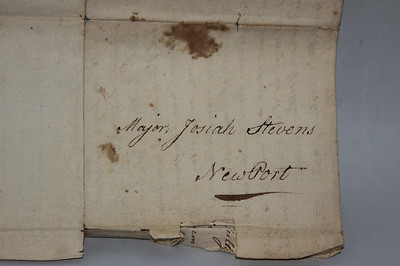 Major Josiah Stevens
New Port